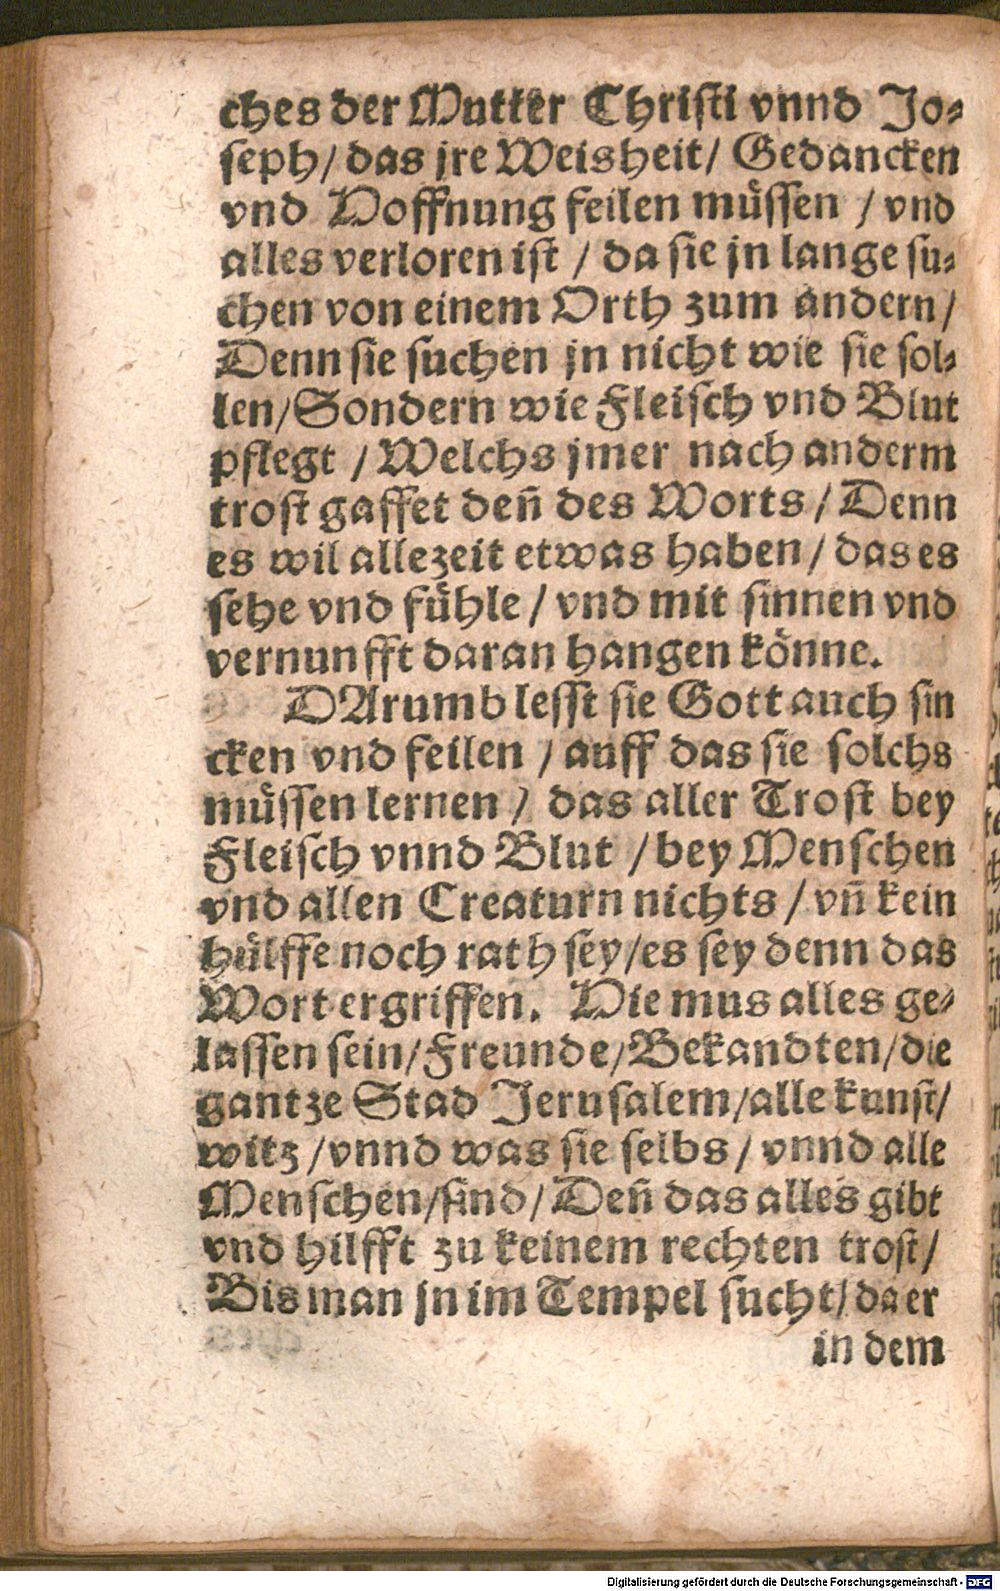 ches der Mutter Christi vnnd Jo-
seph/ das jre Weisheit/ Gedancken
vnd Hoffnung feilen müssen / vnd
alles verloren ist / da sie jn lange su-
chen von einem Orth zum andern/
Denn sie suchen jn nicht wie sie sol-
len/Sondern wie Fleisch vnd Blut
pflegt / Welchs jmer nach anderm
trost gaffet deñ des Worts / Denn
es wil allezeit etwas haben/ das es
sehe vnd fühle / vnd mit sinnen vnd
vernunfft daran hangen könne.
DArumb lesst sie Gott auch sin
cken vnd feilen / auff das sie solchs
müssen lernen / das aller Trost bey
Fleisch vnnd Blut / bey Menschen
vnd allen Creaturn nichts / vñ kein
hülffe noch rath sey/es sey denn das
Wort ergriffen. Hie mus alles ge-
lassen sein/Freunde/Bekandten/die
gantze Stad Jerusalem/alle kunst/
witz /vnnd was sie selbs/ vnnd alle
Menschen/sind/ Deñ das alles gibt
vnd hilfft zu keinem rechten trost/
Bis man jn im Tempel sucht/ da er
in dem
Digitalisierung gefördert durch die Deutsche Forschungsgemeinschaft - DFG